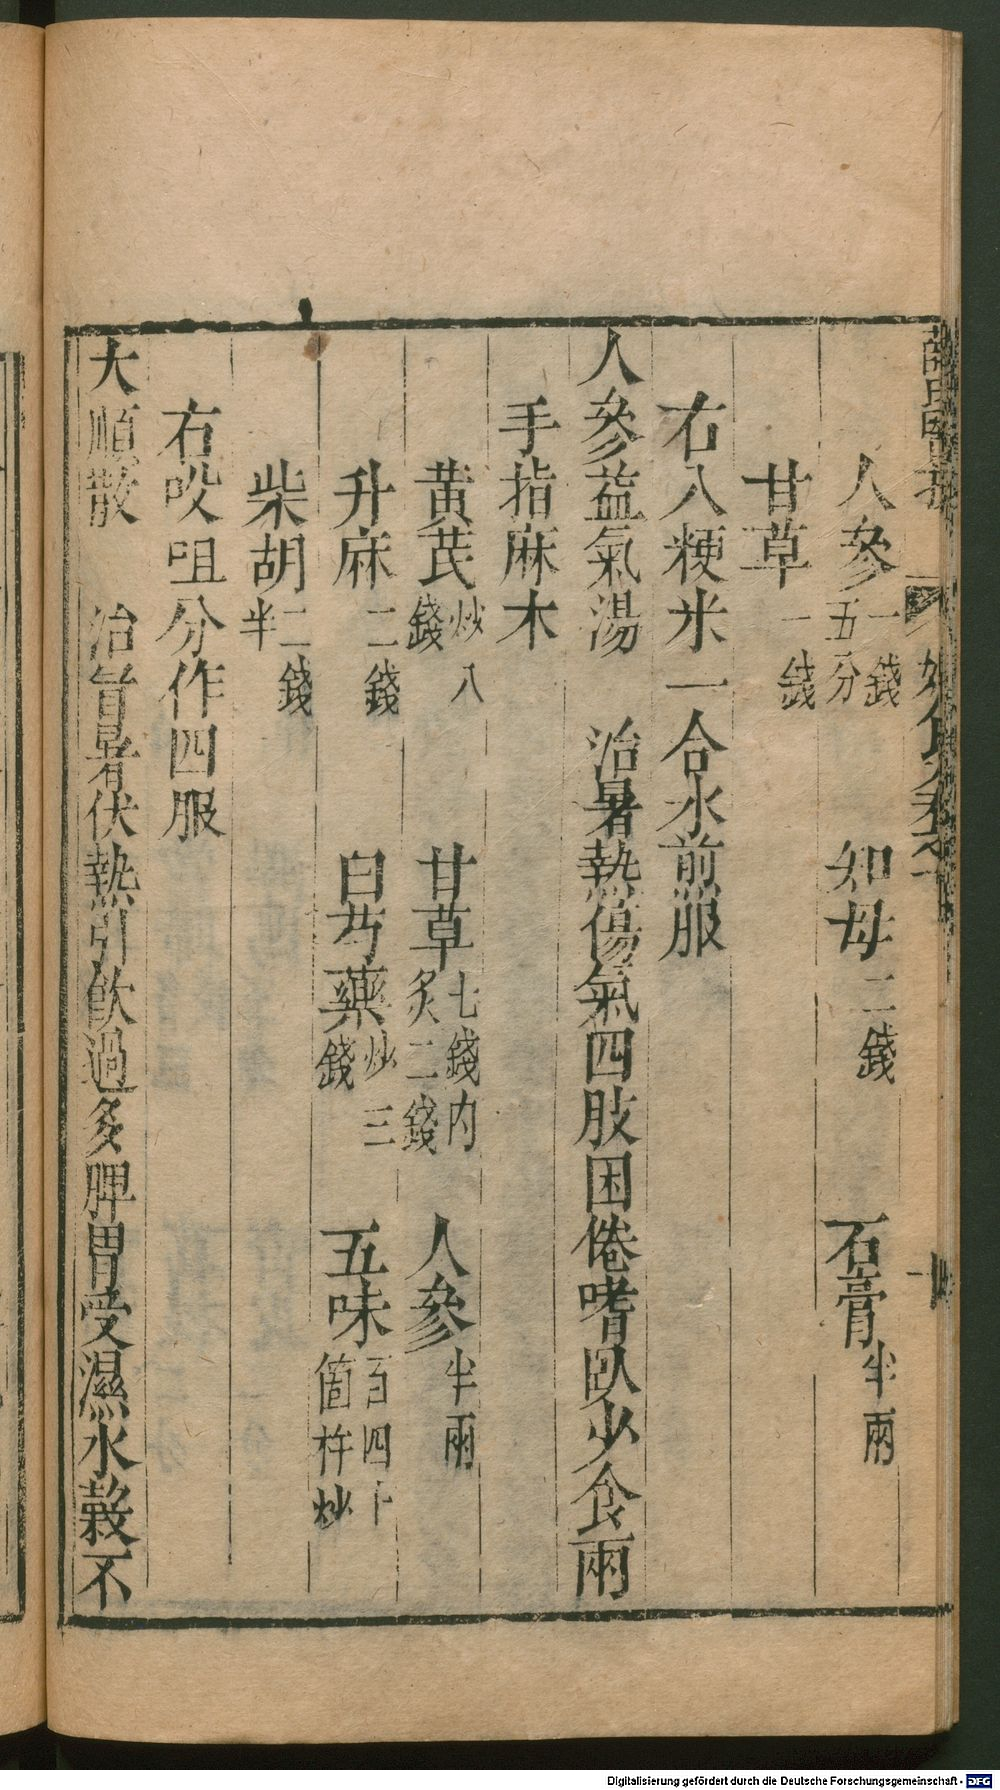 人參一錢五分　知母二錢　石膏半兩
甘草一錢
右入粳米一合水煎服
人參益氣湯　治暑熱傷氣四肢困倦嗜臥少食兩
手指麻木
黃芪炒八錢　甘草七錢內炙二錢　人參半兩
升麻二錢　白芍藥炒三錢　五味百四十箇杵炒
柴胡二錢半
右㕮咀分作四服
大順散　治冒暑伏熱引飲過多脾胃受濕水穀不
Digitalisierung gefördert durch die Deutsche Forschungsgemeinschaft - DFG